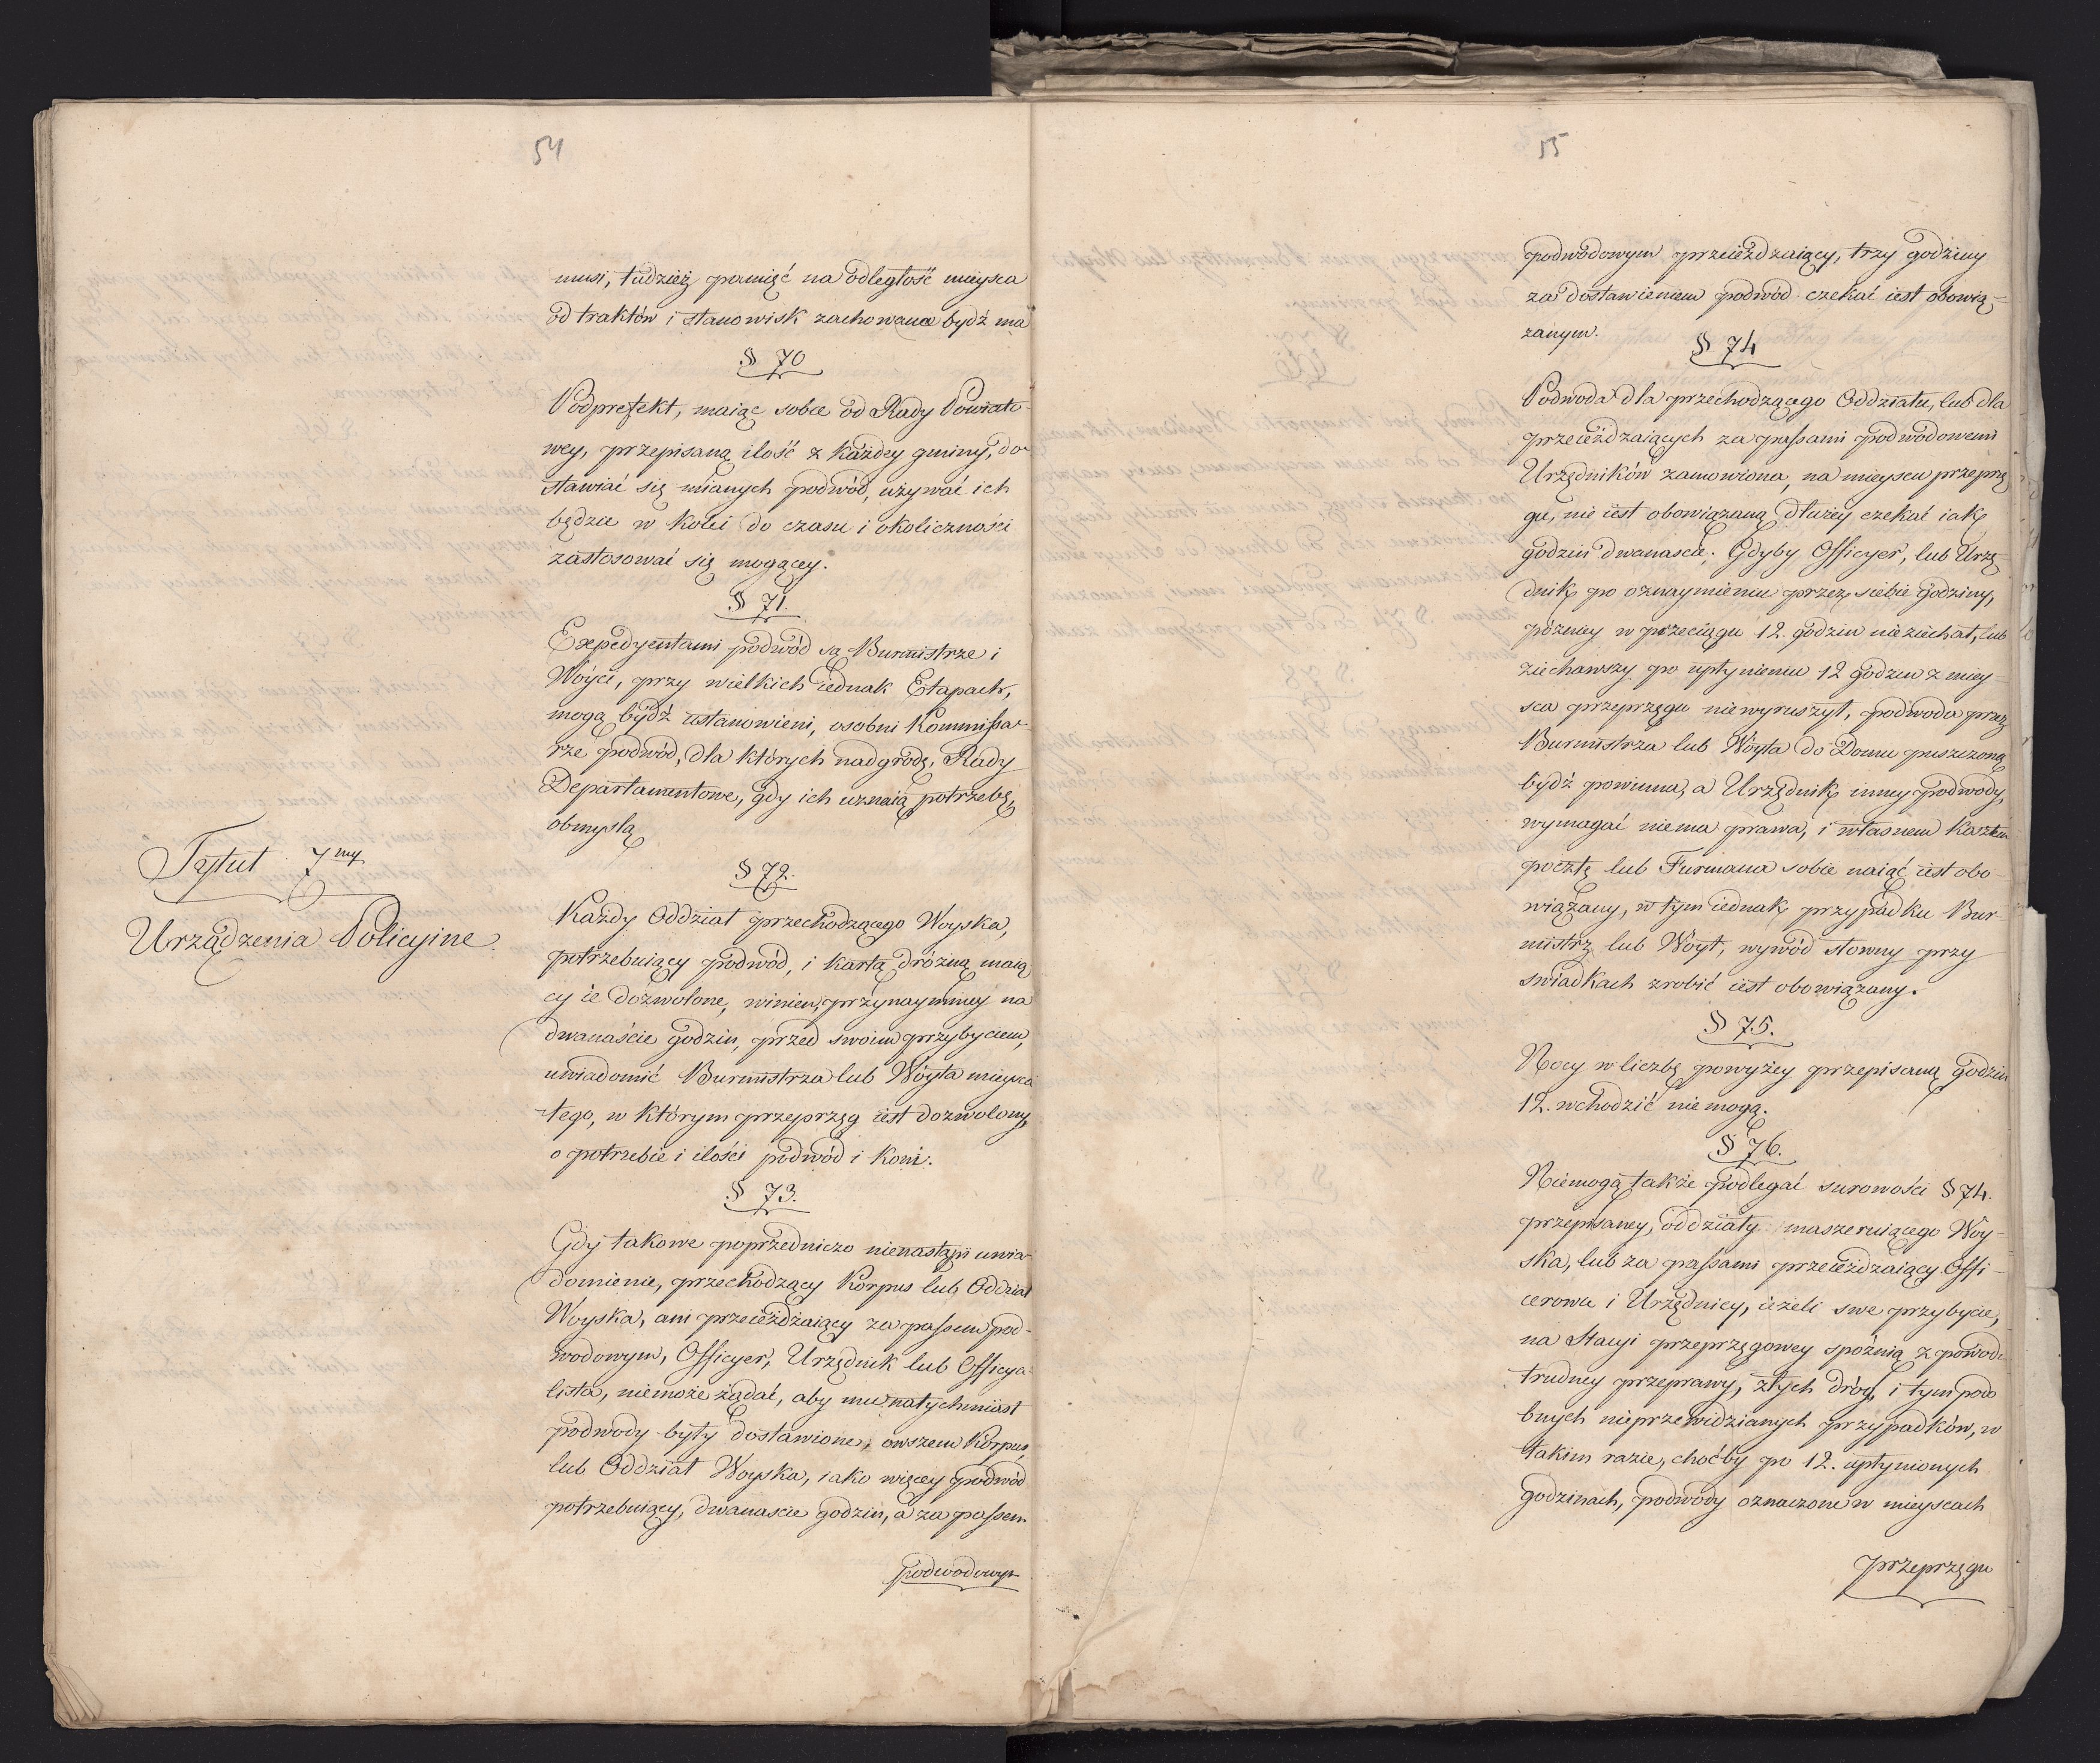 54
musi, tudzież pamięć na odległość mieysca
od traktów i stanowisk zachowana bydź ma
§ 70
Podprefekt, maiąc sobie od Rady Powiato-
wey, przepisaną ilość z każdey gminy, do-
stawiać się mianych podwód, używać ich
będzie w kolei do czasu i okoliczności
zastosować się mogącey.
§ 71.
Expedyentami podwód są Burmistrze i
Wóyci, przy wielkich iednak Etapach,
mogą bydź ustanowieni, osobni Kommissa-
rze podwód, dla których nadgrodę, Rady
Departamentowe, gdy ich uznaią potrzebę,
obmyślą
Tytuł 7my
Urządzenia Policyine.
§ 72.
Każdy Oddział przechodzącego Woyska,
potrzebuiący podwód, i kartą dróżną maią
cy ie dozwolone, winien, przynaymniey na
dwanaście godzin, przed swoim przybyciem,
uwiadomić Burmistrza lub Wóyta mieysca
tego, w którym przeprzęg iest dozwolony,
o potrzebie i ilości podwód i koni.
§ 73.
Gdy takowe poprzedniczo nienastąpi uwia-
domienie, przechodzący Korpus lub Oddział
Woyska, ani przeieżdżaiący za passem pod-
wodowym, Officyer, Urzędnik lub Officya-
lista, niemoże żądać, aby mu natychmiast
podwody były dostawione, owszem Korpus,
lub Oddział Woyska, iako więcey podwód
potrzebuiący, dwanaście godzin, a za passem
podwodowym
55
podwodowym przeieżdzaiący, trzy godziny
za dostawieniem podwód czekać iest obowią-
zanym.
§ 74
Podwoda dla przechodzącego Oddziału, lub dla
przeieżdzaiących za passami podwodowemi
Urzędników zamowiona, na mieyscu przeprzę
gu, nie iest obowiązaną dłużey czekać iak
godzin dwanascie; Gdyby Officyer, lub Urzę-
dnik po oznaymieniu przez siebie godziny,
pózniey w przeciągu 12. godzin nieziechał, lub
ziechawszy po upłynieniu 12 godzin z miey-
sca przeprzęgu niewyruszył, podwoda przez
Burmistrza lub Wóyta do Domu puszczoną
bydź powinna, a Urzędnik inney podwody,
wymagać niema prawa, i własnem kosztem
pocztę lub Furmana sobie naiąć iest obo-
wiązany, w tym iednak przypadku Bur-
mistrz lub Wóyt, wywód słowny przy
swiadkach zrobić iest obowiązany.
§ 75.
Nocy w liczbę powyżey przepisaną godzin
12. wchodzić nie mogą.
§ 76.
Niemogą także podlegać surowości § 74.
przepisaney, oddziały maszeruiącego Woy-
ska, lub za passami przeieżdzaiący Offi-
cerowie i Urzędnicy, ieżeli swe przybycie,
na Stacyi przeprzęgowey spóźnią z powodu
trudney przeprawy, złych dróg, i tym podo
bnych nieprzewidzianych przypadków, w
takim razie, choćby po 12. upłynionych
godzinach, podwody oznaczone w mieyscach
przeprzęgu